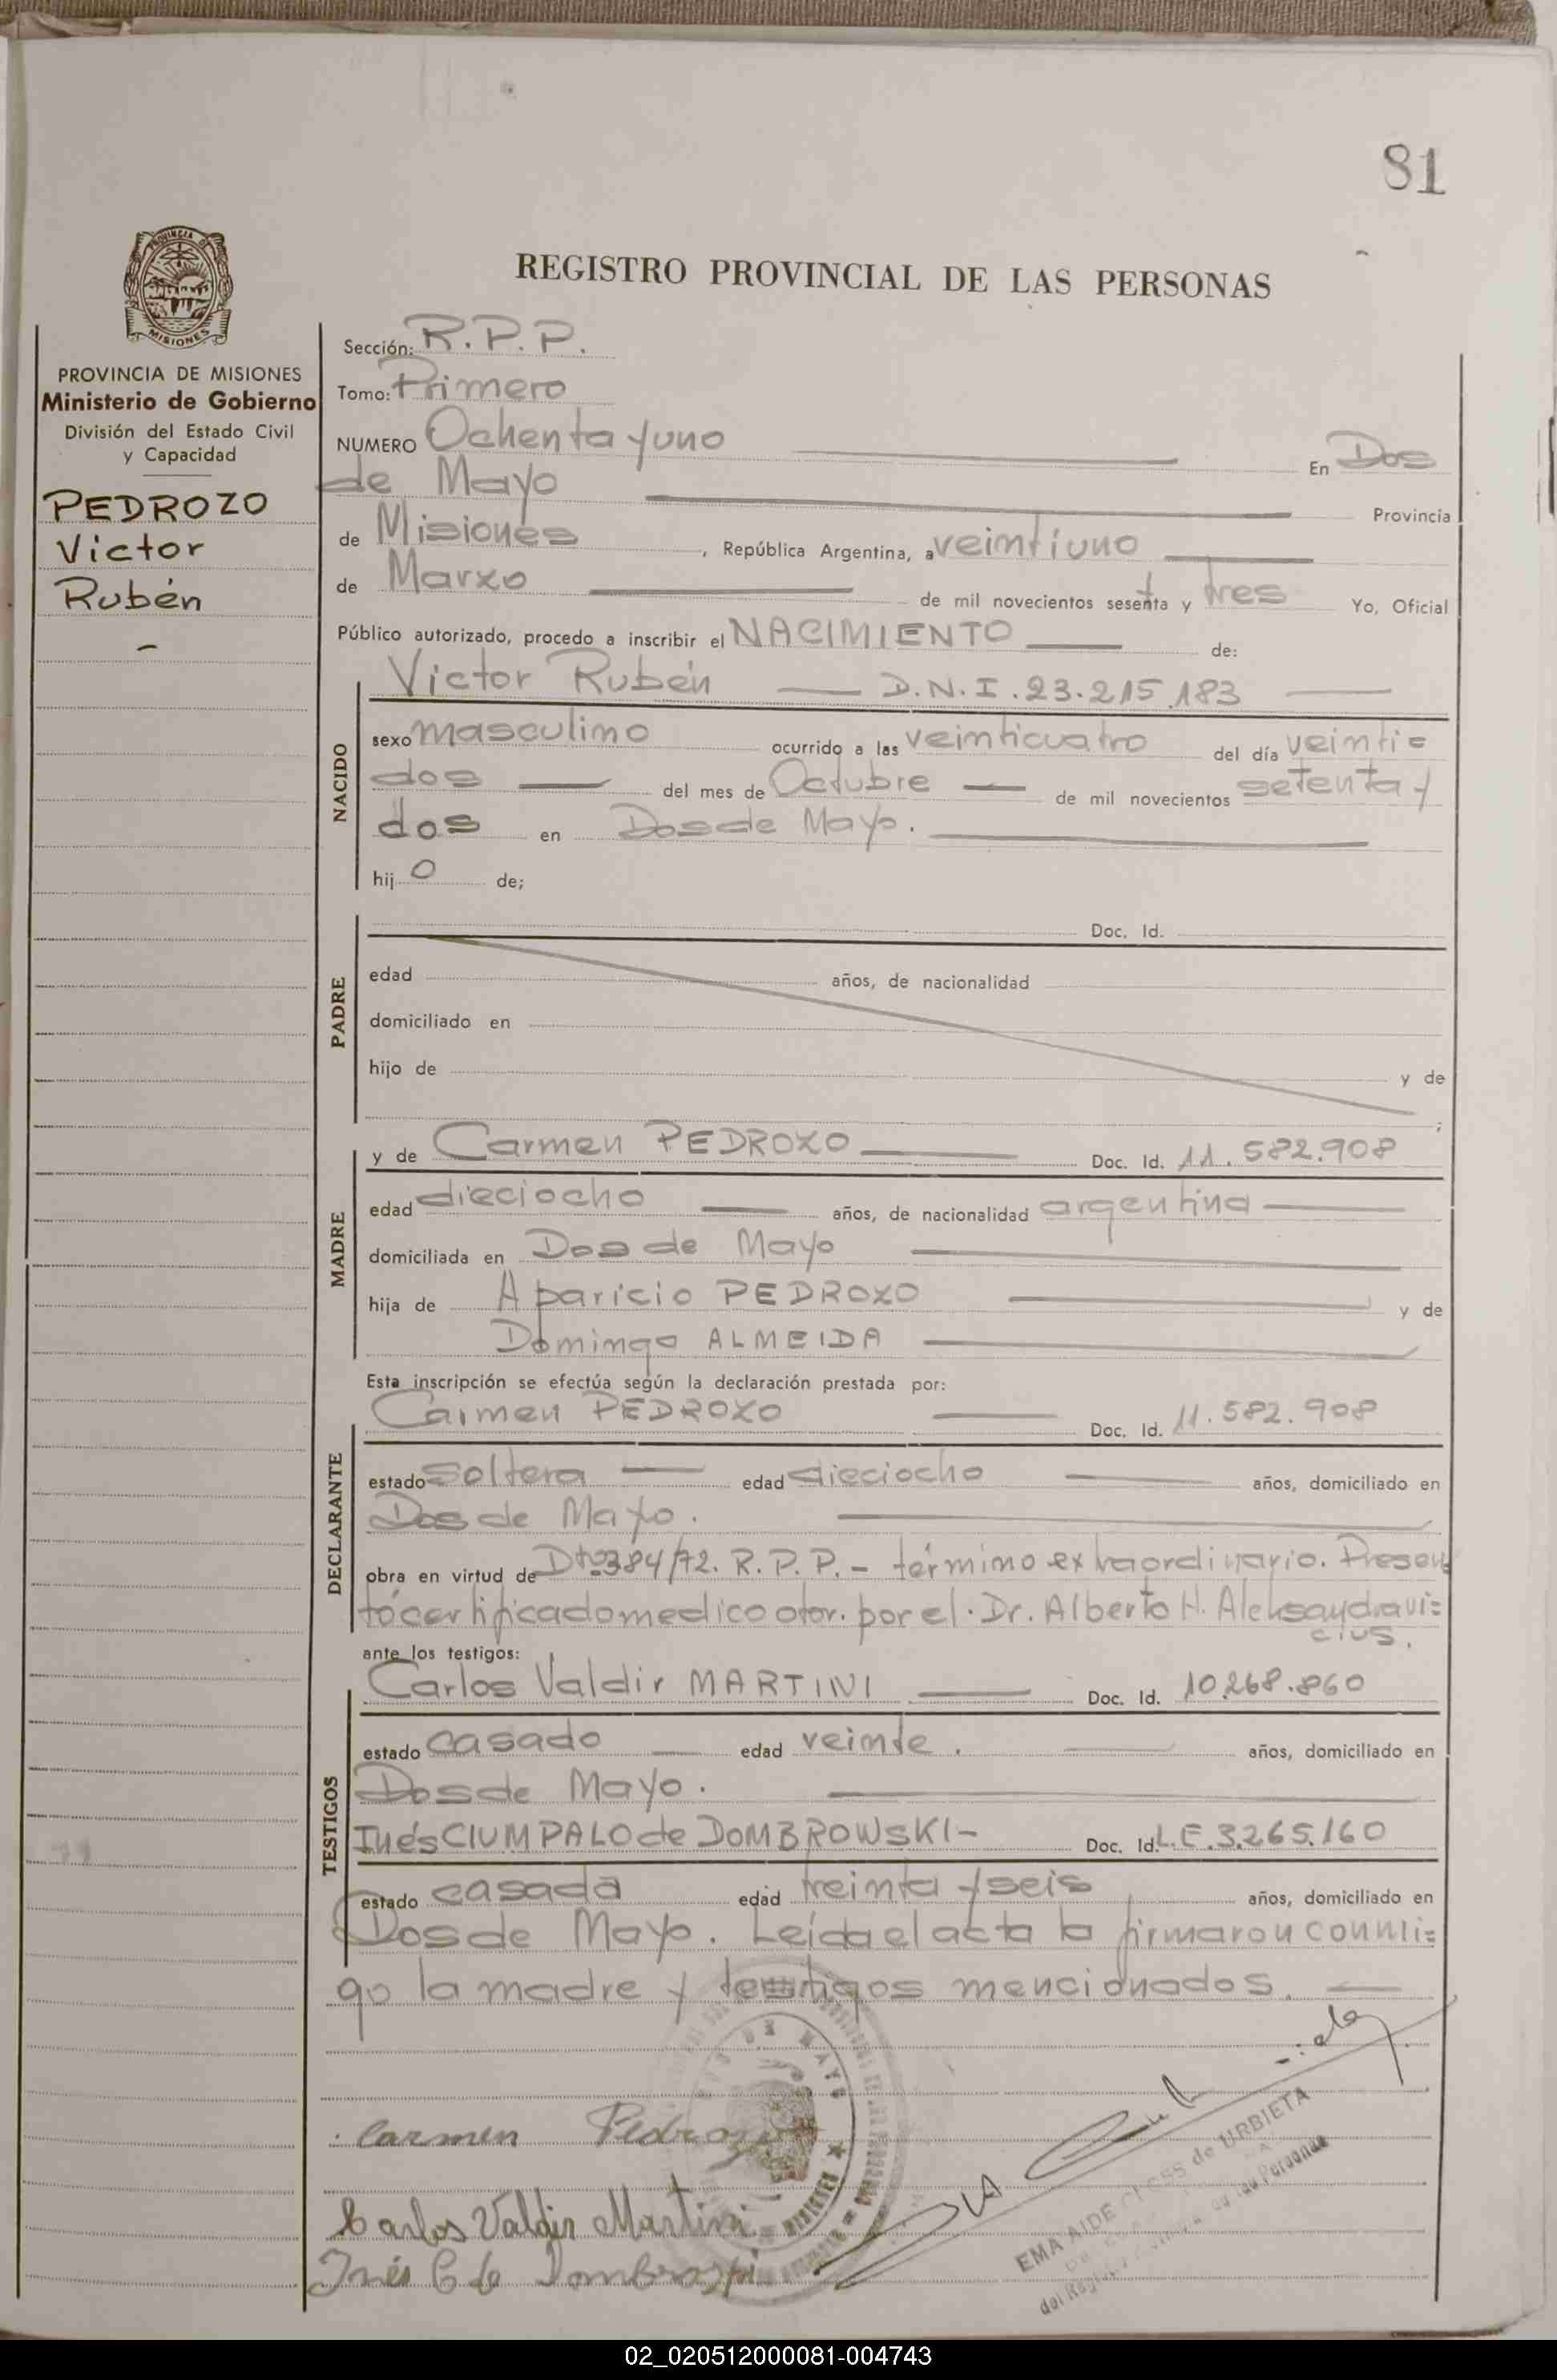 81
PROVINCIA DE MISIONES
REGISTRO PROVINCIAL DE LAS PERSONAS
PROVINCIA DE MISIONES
Ministerio de Gobierno
División del Estado Civil
y Capacidad
PEDROZO
Victor
Rubén
Sección: R.P.P.
Tomo: Primero
NUMERO Ochenta y uno En Dos
de Mayo Provincia
de Misiones, República Argentina, a veintiuno
de Marzo de mil novecientos sesenta y tres Yo, Oficial
Público autorizado, procedo a inscribir el NACIMIENTO de:
NACIDO
Victor Rubén D.N.I. 23.215.183
sexo masculino ocurrido a las veinticuatro del día veinti=
dos del mes de Octubre de mil novecientos setenta y
dos en Dos de Mayo.
hijo de;
PADRE
Doc. Id.
edad años, de nacionalidad
domiciliado en
hijo de y de
;
MADRE
y de Carmen PEDROZO Doc. Id. 11.582.908
edad dieciocho años, de nacionalidad argentina
domiciliada en Dos de Mayo
hija de Aparicio PEDROZO y de
Domingo ALMEIDA
Esta inscripción se efectúa según la declaración prestada por:
DECLARANTE
Carmen PEDROZO Doc. Id. 11.582.908
estado soltera edad dieciocho años, domiciliado en
Dos de Mayo.
obra en virtud de Dto 384/72. R.P.P.- término extraordinario. Presen
tó certificado medico otor. por el Dr. Alberto H. Aleksandravi=
cius.
ante los testigos:
TESTIGOS
Carlos Valdir MARTINI Doc. Id. 10.268.860
estado casado edad veinte. años, domiciliado en
Dos de Mayo.
Inés CIUMPALO de DOMBROWSKI- Doc. Id. L.E. 3.265.160
estado casada edad treinta y seis años, domiciliado en
Dos de Mayo. Leída el acta la firmaron conmi=
go la madre y testigos mencionados.
Carmen Pedrozo
Carlos Valdir Martini
Inés C de Dombrowski
EMA AIDE de URBIETA
de las Personas
02_020512000081-004743